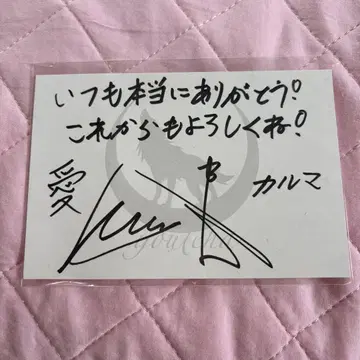 いつも本当にありがとう!
これからもよろしくね!
愛
カルマ